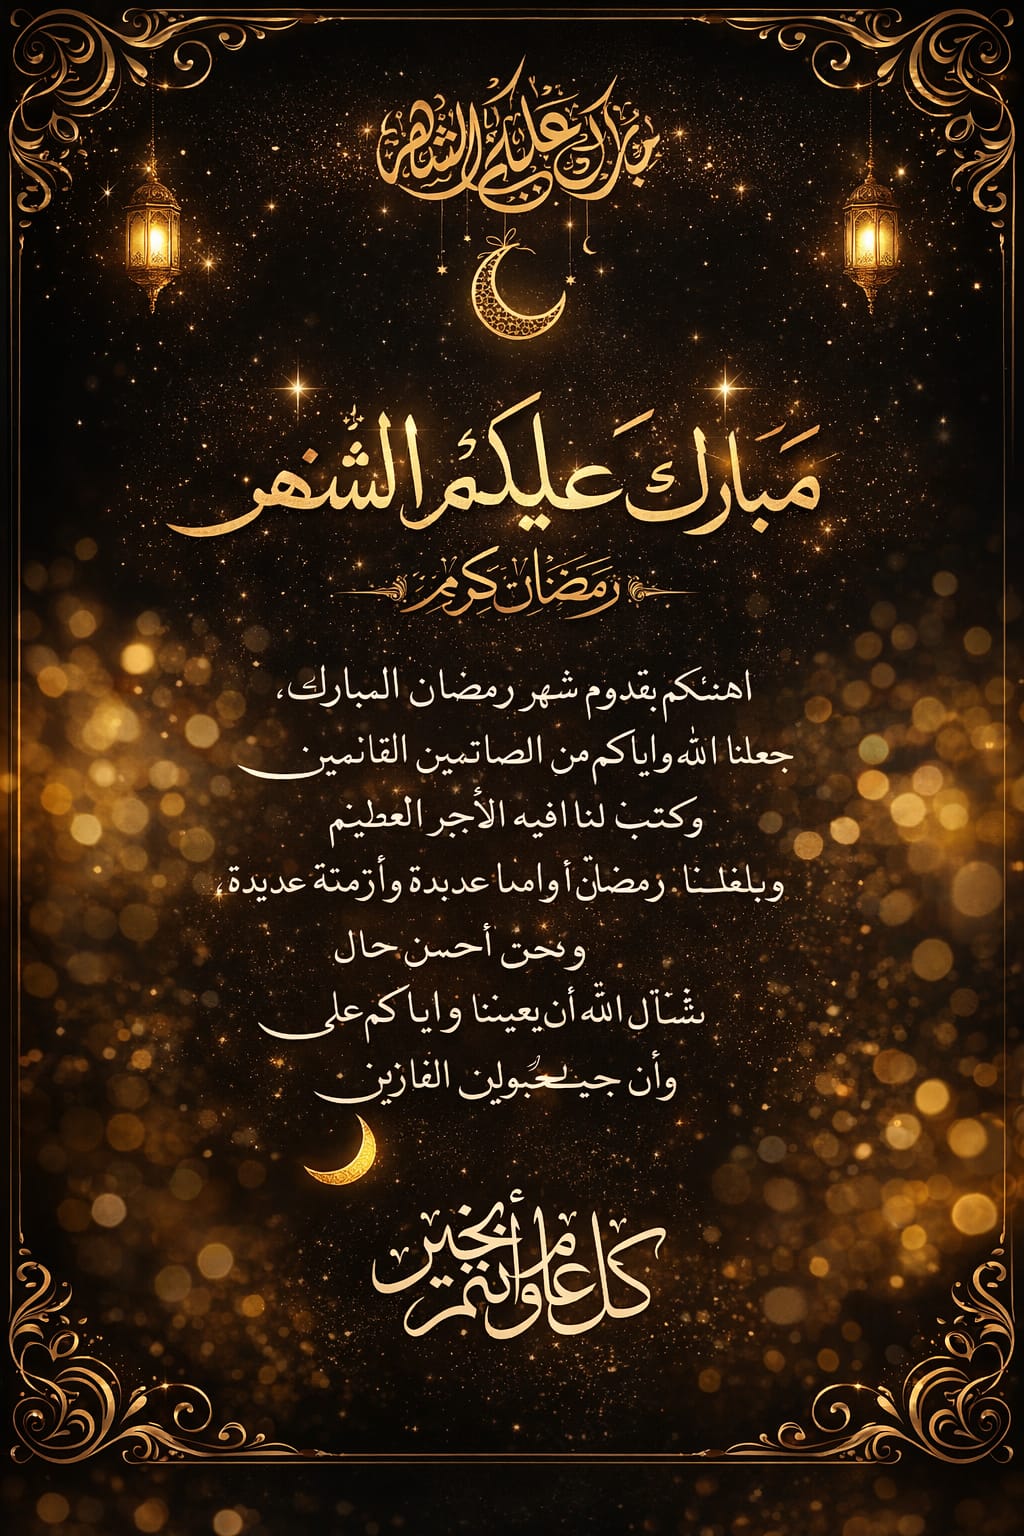 مبارك عليكم الشهر
مَبارك عَليكم الشهر
رَمَضَان كريم
اهنئكم بقدوم شهر رمضان المبارك،
جعلنا الله واياكم من الصائمين القائمين
وكتب لنا افيه الأجر العظيم
رمضان عديدة وأزمتة عديدة،
أحسن حال
الله أن يعيننا واياكم على
وأن الفازين
كل عام وأنتم بخير